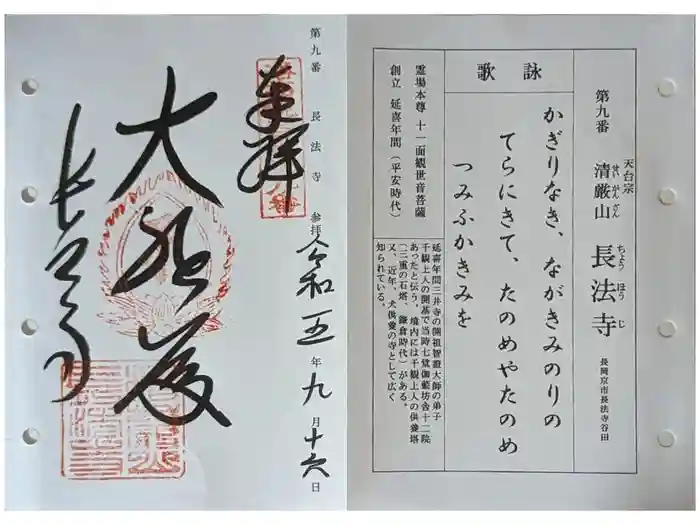 天台宗
第九番 清厳山 長法寺 長岡京市長法寺谷田
せいがんざん
ちょうほうじ
詠歌
かぎりなき、ながきみのりの
てらにきて、たのめやたのめ
つみふかきみを
霊場本尊 十一面観世音菩薩
創立 延喜年間(平安時代)
延喜年間三井寺の開祖智證大師の弟子
千観上人の開基で当時七堂伽藍坊舎十二院
あったと伝う。境内には千観上人の供養塔
(三重の石塔、鎌倉時代)がある。
又、近年、犬供養の寺として広く
知られている。
第九番 長法寺 参拝 令和五年九月十六日
奉拝
大悲殿
長法寺